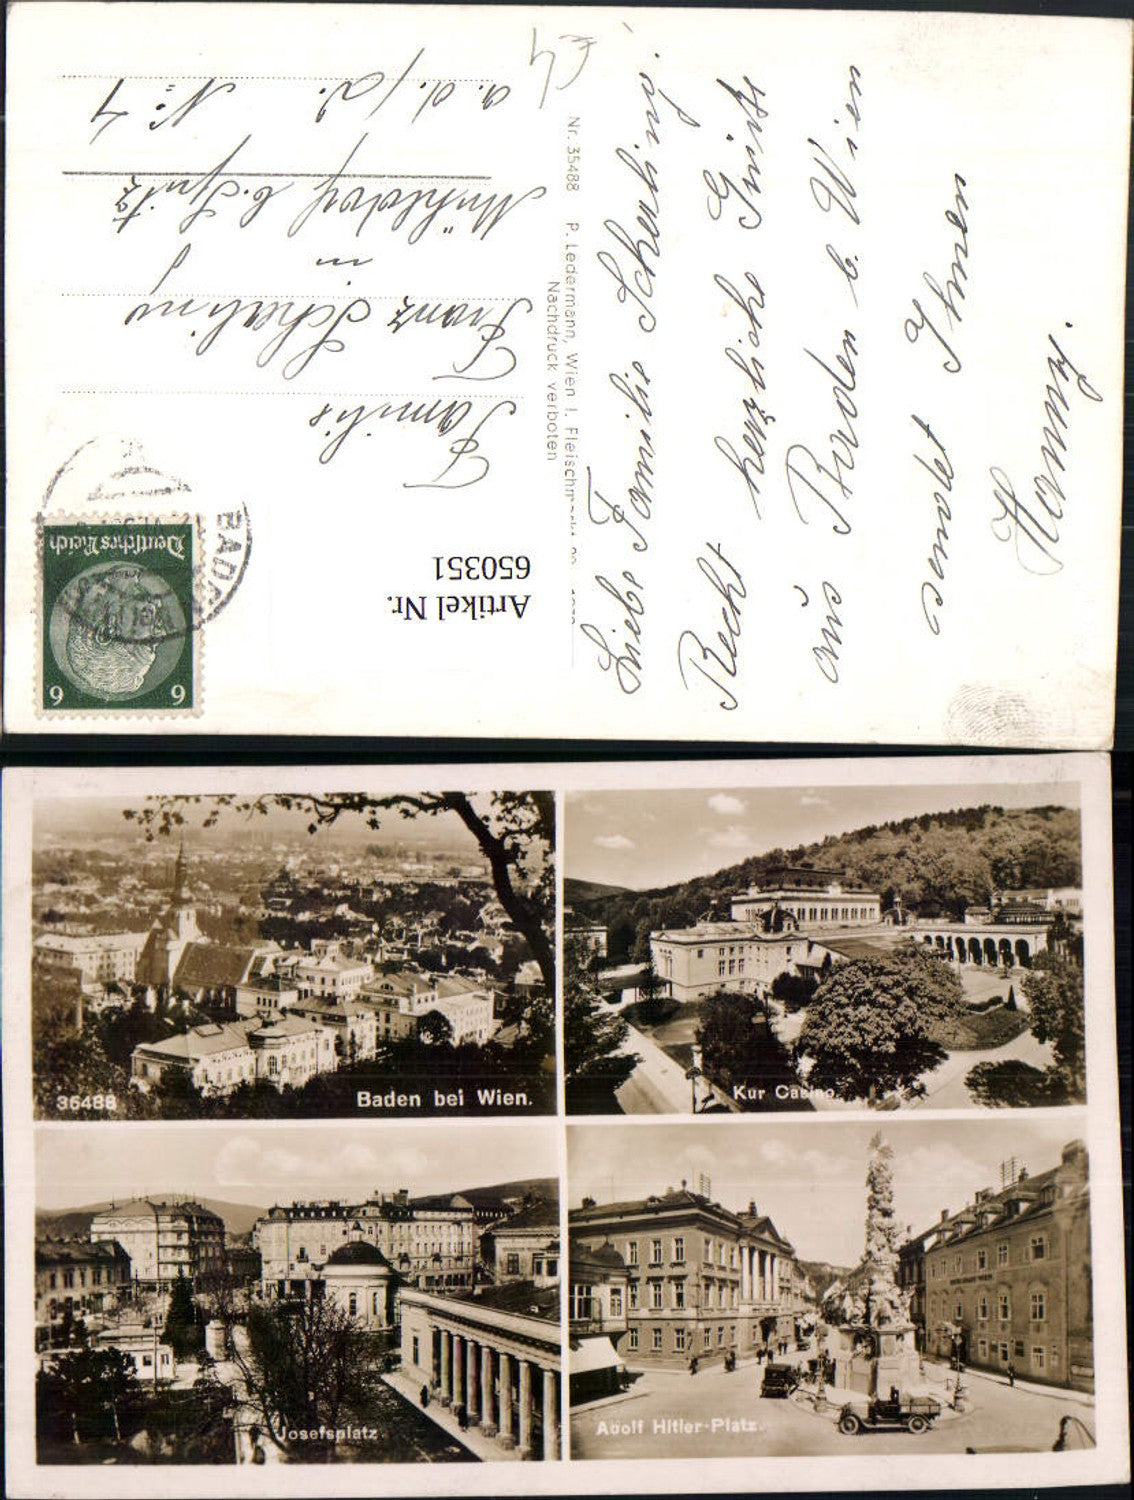 Liebe Familie Scherling.
Recht herzliche Grüße
aus Baden b. Wien
sendet Ihnen
Hanny.
Nr. 35488 P. Ledermann, Wien I. Fleischmarkt
Nachdruck verboten
Familie
Franz Scherling
in
Mühldorf b. Spitz
a. d. D. No 4
BADEN
Deutsches Reich
6 6
Artikel Nr.
650351
35488
Baden bei Wien.
Kur Casino.
Josefsplatz.
Adolf Hitler-Platz.